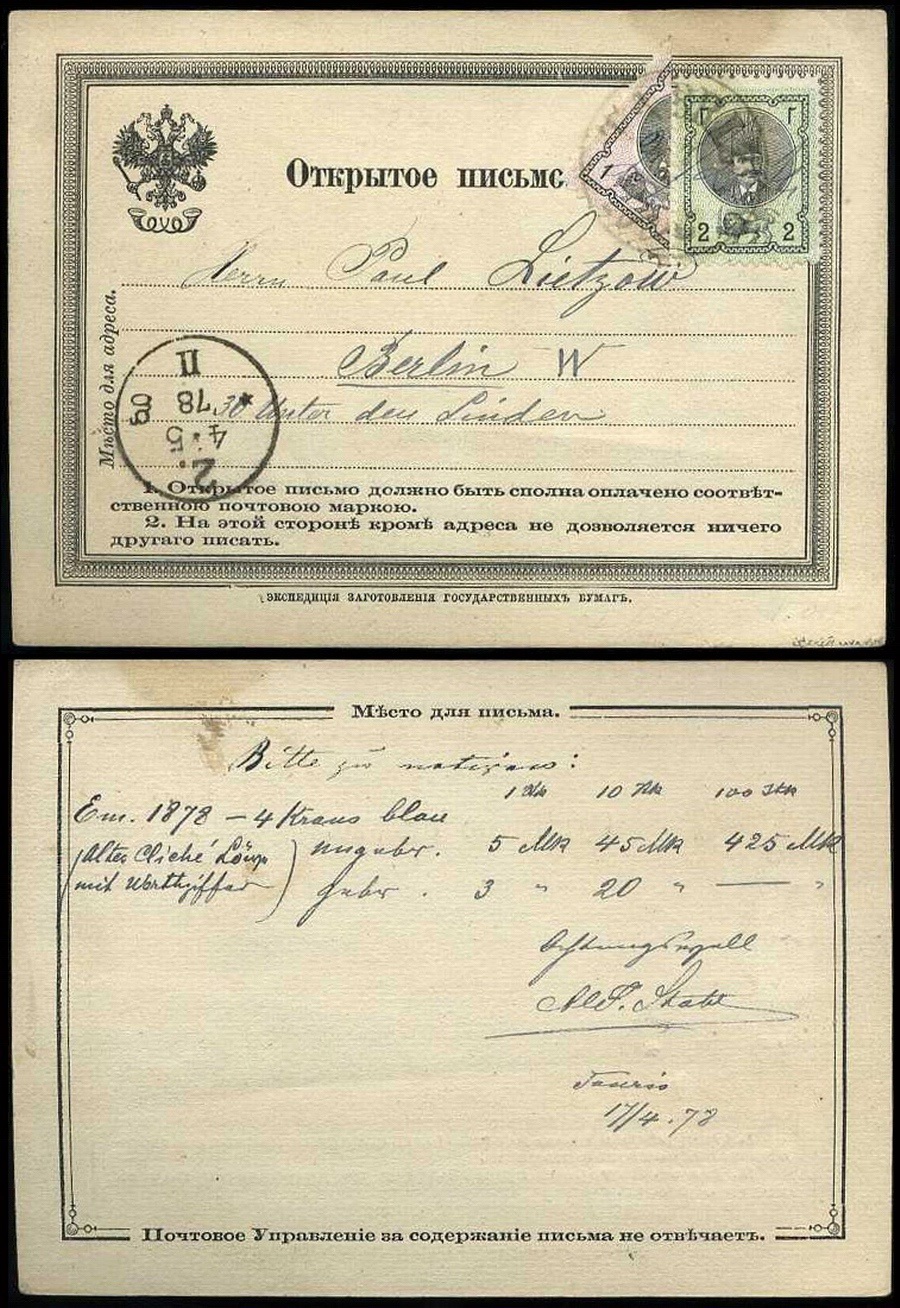 Открытое письмо
1
۲ ۲
2 2
Herrn Paul Lietzow
Berlin W
30 Unter den Linden
Мѣсто для адреса.
II
78
4.5
2.
50
1. Открытое письмо должно быть сполна оплачено соотвѣт-
ственною почтовою маркою.
2. На этой сторонѣ кромѣ адреса не дозволяется ничего
другаго писать.
ЭКСПЕДИЦІЯ ЗАГОТОВЛЕНІЯ ГОСУДАРСТВЕННЫХЪ БУМАГЪ.
Мѣсто для письма.
Bitte zu notiren:
1 Stk 10 Stk 100 Stk
Em. 1878 – 4 Kraus blau
(Alter Cliché Löwe ungebr. 5 Mk 45 Mk 425 Mk
mit Werthziffer) gebr. 3 " 20 " — "
Achtungsvoll
Stahl
Tauris
17/4.78
Почтовое Управленіе за содержаніе письма не отвѣчаетъ.